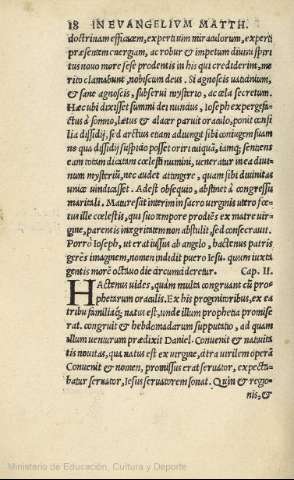 18 IN EVANGELIVM MATTH.
doctrinam efficacem, expertui miraculorum, experti
præsentem energiam, ac robur & impetum diuini spiri
tus nouo more sese prodentis in his qui crediderint, me
rito clamabunt, nobiscum deus. Si agnoscis uaticinium,
& sane agnoscis, subserui mysterio, ac cæla secretum.
Hæc ubi dixisset summi dei nuncius, Ioseph expergefa
ctus à somno, lætus & alacer paruit oraculo, ponit consi
lia dissidij, sed arctius etiam adiungit sibi coniugem suam
ne qua dissidij suspitio posset oriri cuiquā, iamq; sentiens
eam totam dicatam cœlesti numini, ueneratur in ea diui
num mysteriū, nec audet attingere, quam sibi diuinitas
unice uindicasset. Adest obsequio, abstinet à congressu
maritali. Maturescit interim in sacro uirginis utero foe-
tus ille cœlestis, qui suo tempore prodiēs ex matre uir-
gine, parentis integritatem non abstulit, sed consecrauit.
Porrò Ioseph, ut erat iussus ab angelo, hactenus patris
gerēs imaginem, nomen indidit puero Iesu, quum iuxta
gentis morē octauo die circumcideretur. Cap. II.
HActenus uides, quàm multa congruant cū pro-
phetarum oraculis. Ex his progenitoribus, ex ea
tribu familiaq; natus est, unde illum prophetia promise
rat. congruit & hebdomadarum supputatio, ad quam
illum uenturum prædixit Daniel. Conuenit & natiuita
tis nouitas, quia natus est ex uirgine, citra uirilem operā
Conuenit & nomen, promissus erat seruator, expecta-
batur seruator, Iesus seruatorem sonat. Quin & regio-
nis, &
Ministerio de Educación, Cultura y Deporte